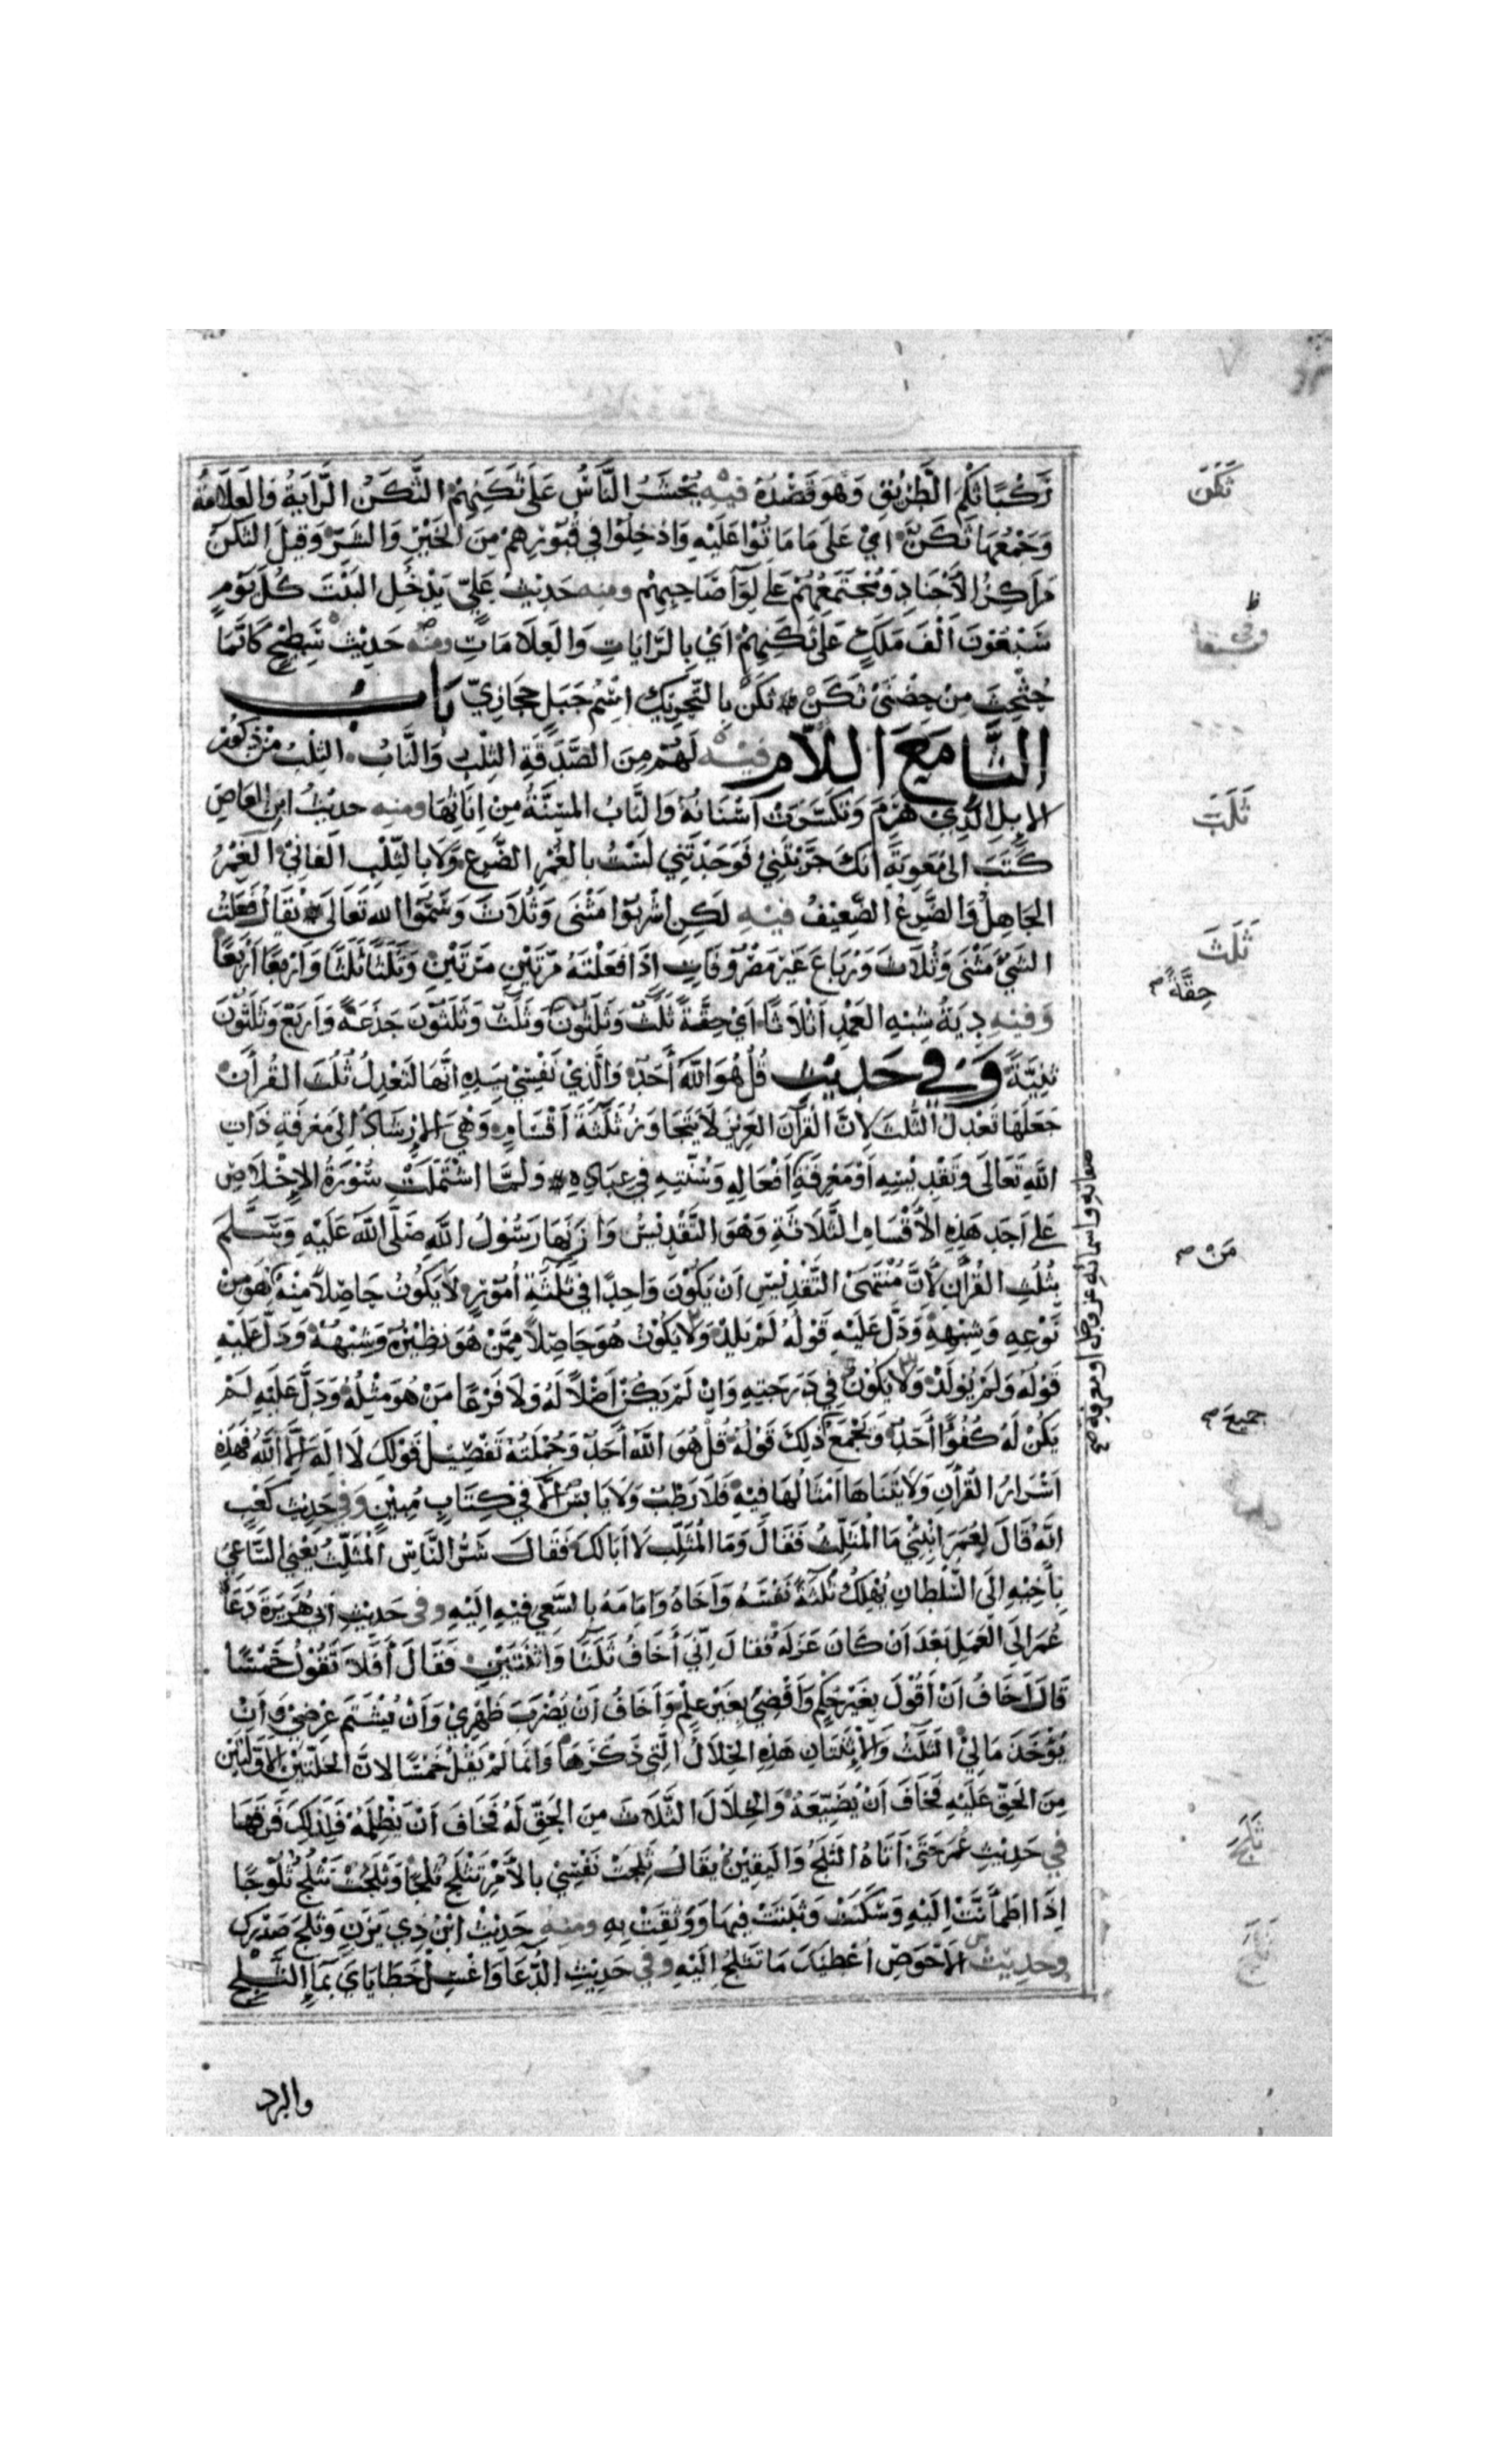 رَكِبَا ثَكَمَ الطَّرِيْقِ وَهُوَ قَصْدُهُ فيه يُحْشَرُ النَّاسُ عَلَى ثُكَنِهِمْ الثُّكَنُ الرَّايَةُ وَالعَلَامَةُ
وَجَمْعُهَا ثُكَنٌ اَيْ عَلَى مَا مَاتُوْا عَلَيْهِ وَاُدْخِلُوْا فِي قُبُوْرِهِمْ مِنَ الخَيْرِ وَالشَّرِّ وَقِيلَ الثُّكَنُ
مَرَاكِزُ الاَجْنَادِ وَمُجْتَمَعُهُمْ عَلَى لِوَآءِ صَاحِبِهِمْ ومنه حَدِيْثُ عَلِيّ يَدْخُلُ البَيْتَ كُلَّ يَوْمٍ
سَبْعُوْنَ اَلْفَ مَلَكٍ عَلَى ثُكَنِهِمْ اَيْ بِالرَّايَاتِ وَالعَلَامَاتِ ومنه حَدِيْثُ سَطِيْحٍ كَاَنَّمَا
حُثْحِثَ مِنْ حِضْنَيْ ثَكَنْ ثَكَنٌ بِالتَّحْرِيْكِ اسْمُ جَبَلٍ حِجَازِيّ بَابُ
الثَّا مَعَ اللَّامِ فيه لَهُمْ مِنَ الصَّدَقَةِ الثِّلْبُ وَالنَّابُ الثِّلْبُ مِنْ ذُكُوْرِ
الاِبِلِ الَّذِيْ هَرِمَ وَتَكَسَّرَتْ اَسْنَانُهُ وَالنَّابُ المُسِنَّةُ مِنْ اِنَاثِهَا ومنه حَدِيْثُ ابْنِ العَاصِ
كَتَبَ اِلَى مُعٰوِيَةَ اِنَّكَ جَرَّبْتَنِيْ فَوَجَدْتَنِي لَسْتُ بِالغُمْرِ الضَّرَعِ وَلَا بِالثِّلْبِ الفَانِيْ الغُمْرُ
الجَاهِلُ وَالضَّرَعُ الضَّعِيْفُ فيه لَكِنِ اشْرَبُوْا مَثْنَى وَثُلَاثَ وَسَمُّوا اللهَ تَعَالَى يُقَالُ فَعَلْتُ
الشَّيْءَ مَثْنَى وَثُلَاثَ وَرُبَاعَ غَيْرَ مَصْرُوْفَاتٍ اِذَا فَعَلْتَهُ مَرَّتَيْنِ مَرَّتَيْنِ وَثَلَثًا ثَلَثًا وَاَرْبَعًا اَرْبَعًا
وَفيه دِيَةُ شِبْهِ العَمْدِ اَثْلَاثًا اَيْ حِقَّةً ثَلَثٌ وَثَلَثُوْنَ وَثَلَثٌ وَثَلَثُوْنَ جَذَعَةً وَاَرْبَعٌ وَثَلَثُوْنَ
ثَنِيَّةً وَفِي حَدِيْثِ قُلْ هُوَ اللهُ اَحَدٌ وَالَّذِيْ نَفْسِيْ بِيَدِهِ اِنَّهَا لَتَعْدِلُ ثُلُثَ القُرْاٰنِ
جَعَلَهَا تَعْدِلُ الثُّلُثَ لِاَنَّ القُرْآنَ العَزِيْزَ لَا يَتَجَاوَزُ ثَلَثَةَ اَقْسَامٍ وَهِيَ الاِرْشَادُ اِلَى مَعْرِفَةِ ذَاتِ
اللهِ تَعَالَى وَتَقْدِيْسِهِ اَوْ مَعْرِفَةِ اَفْعَالِهِ وَسُنَّتِهِ فِي عِبَادِهِ وَلَمَّا اشْتَمَلَتْ سُوْرَةُ الاِخْلَاصِ
عَلَى اَحَدِ هَذِهِ الاَقْسَامِ الثَّلَاثَةِ وَهُوَ التَّقْدِيْسُ وَازَنَهَا رَسُوْلُ اللهِ صَلَّى اللهُ عَلَيْهِ وَسَلَّمَ
بِثُلُثِ القُرْاٰنِ لِاَنَّ مُنْتَهَى التَّقْدِيْسِ اَنْ يَكُوْنَ وَاحِدًا فِي ثَلَثَةِ اُمُوْرٍ لَا يَكُوْنُ حَاصِلًا مِنْهُ هُوَ مِنْ
نَوْعِهِ وَشِبْهِهِ وَدَلَّ عَلَيْهِ قَوْلُهُ لَمْ يَلِدْ وَلَا يَكُوْنُ هُوَ حَاصِلًا مِمَّنْ هُوَ نَظِيْرُهُ وَشِبْهُهُ وَدَلَّ عَلَيْهِ
قَوْلُهُ وَلَمْ يُوْلَدْ وَلَا يَكُوْنُ فِي دَرَجَتِهِ وَاِنْ لَمْ يَكُنْ اَصْلًا لَهُ وَلَا فَرْعًا مَنْ هُوَ مِثْلُهُ وَدَلَّ عَلَيْهِ لَمْ
يَكُنْ لَهُ كُفُوًا اَحَدٌ وَيَجْمَعُ ذَلِكَ قَوْلُهُ قُلْ هُوَ اللهُ اَحَدٌ وَجُمْلَتُهُ تَفْصِيْلُ قَوْلِكَ لَا اِلَهَ اِلَّا اللهُ فَهَذِهِ
اَسْرَارُ القُرْاٰنِ وَلَا يَتَنَاهَا اَمْثَالُهَا فِيْهِ فَلَا رَطْبٌ وَلَا يَابِسٌ اِلَّا فِيْ كِتَابٍ مُبِيْنٍ وَفي حَدِيْثِ كَعْبٍ
اَنَّهُ قَالَ لِعُمَرَ اَنْبِئْنِيْ مَا المُثَلِّثُ فَقَالَ وَمَا المُثَلِّثُ لَا اَبَا لَكَ فَقَالَ شَرُّ النَّاسِ المُثَلِّثُ يَعْنِي السَّاعِيَ
بِاَخِيْهِ اِلَى السُّلْطَانِ يُهْلِكُ ثَلَثَةً نَفْسَهُ وَاَخَاهُ وَاِمَامَهُ بِالسَّعْيِ فِيْهِ اِلَيْهِ وفي حَدِيْثِ اَبِي هُرَيْرَةَ دَعَاهُ
عُمَرُ اِلَى العَمَلِ بَعْدَ اَنْ كَانَ عَزَلَهُ فَقَالَ اِنِّيْ اَخَافُ ثَلَثًا وَاثْنَتَيْنِ فَقَالَ اَفَلَا تَقُوْلُ خَمْسًا
قَالَ اَخَافُ اَنْ اَقُوْلَ بِغَيْرِ حُكْمٍ وَاَقْضِيَ بِغَيْرِ عِلْمٍ وَاَخَافُ اَنْ يُضْرَبَ ظَهْرِيْ وَاَنْ يُشْتَمَ عِرْضِيْ وَاَنْ
يُؤْخَذَ مَالِيْ الثَّلَثُ وَالاِثْنَتَانِ هَذِهِ الخِلَالُ الَّتِي ذَكَرَهَا وَاِنَّمَا لَمْ يَقُلْ خَمْسًا لِاَنَّ الخَلَّتَيْنِ الاَوَّلَتَيْنِ
مِنَ الحَقِّ عَلَيْهِ فَخَافَ اَنْ يُضَيِّعَهُ وَالخِلَالَ الثَّلَاثَ مِنَ الحَقِّ لَهُ فَخَافَ اَنْ يُظْلَمَهُ فَلِذَلِكَ فَرَّقَهَا
في حَدِيْثِ عُمَرَ حَتَّى اَتَاهُ الثَّلَجُ وَاليَقِيْنُ يُقَالُ ثَلِجَتْ نَفْسِيْ بِالاَمْرِ تَثْلَجُ ثَلَجًا وَثَلَجَتْ تَثْلُجُ ثُلُوْجًا
اِذَا اطْمَأَنَّتْ اِلَيْهِ وَسَكَنَتْ وَثَبَتَتْ فِيهَا وَوَثِقَتْ بِهِ ومنه حَدِيْثُ ابْنِ ذِي يَزَنٍ وَثَلَجَ صَدْرُكَ
وحديث الاَحْوَصِ اُعْطِيْكَ مَا تَثْلُجُ اِلَيْهِ وفي حَدِيْثِ الدُّعَاءِ وَاغْسِلْ خَطَايَايَ بِمَاءِ الثَّلْجِ
والبرد
ثَكَنَ
ثَلَبَ
ثَلَثَ
حِقَّةً صح
مَنْ صح
جميعَ صح
صفاته واسمائه عز وجل او معرفة صح